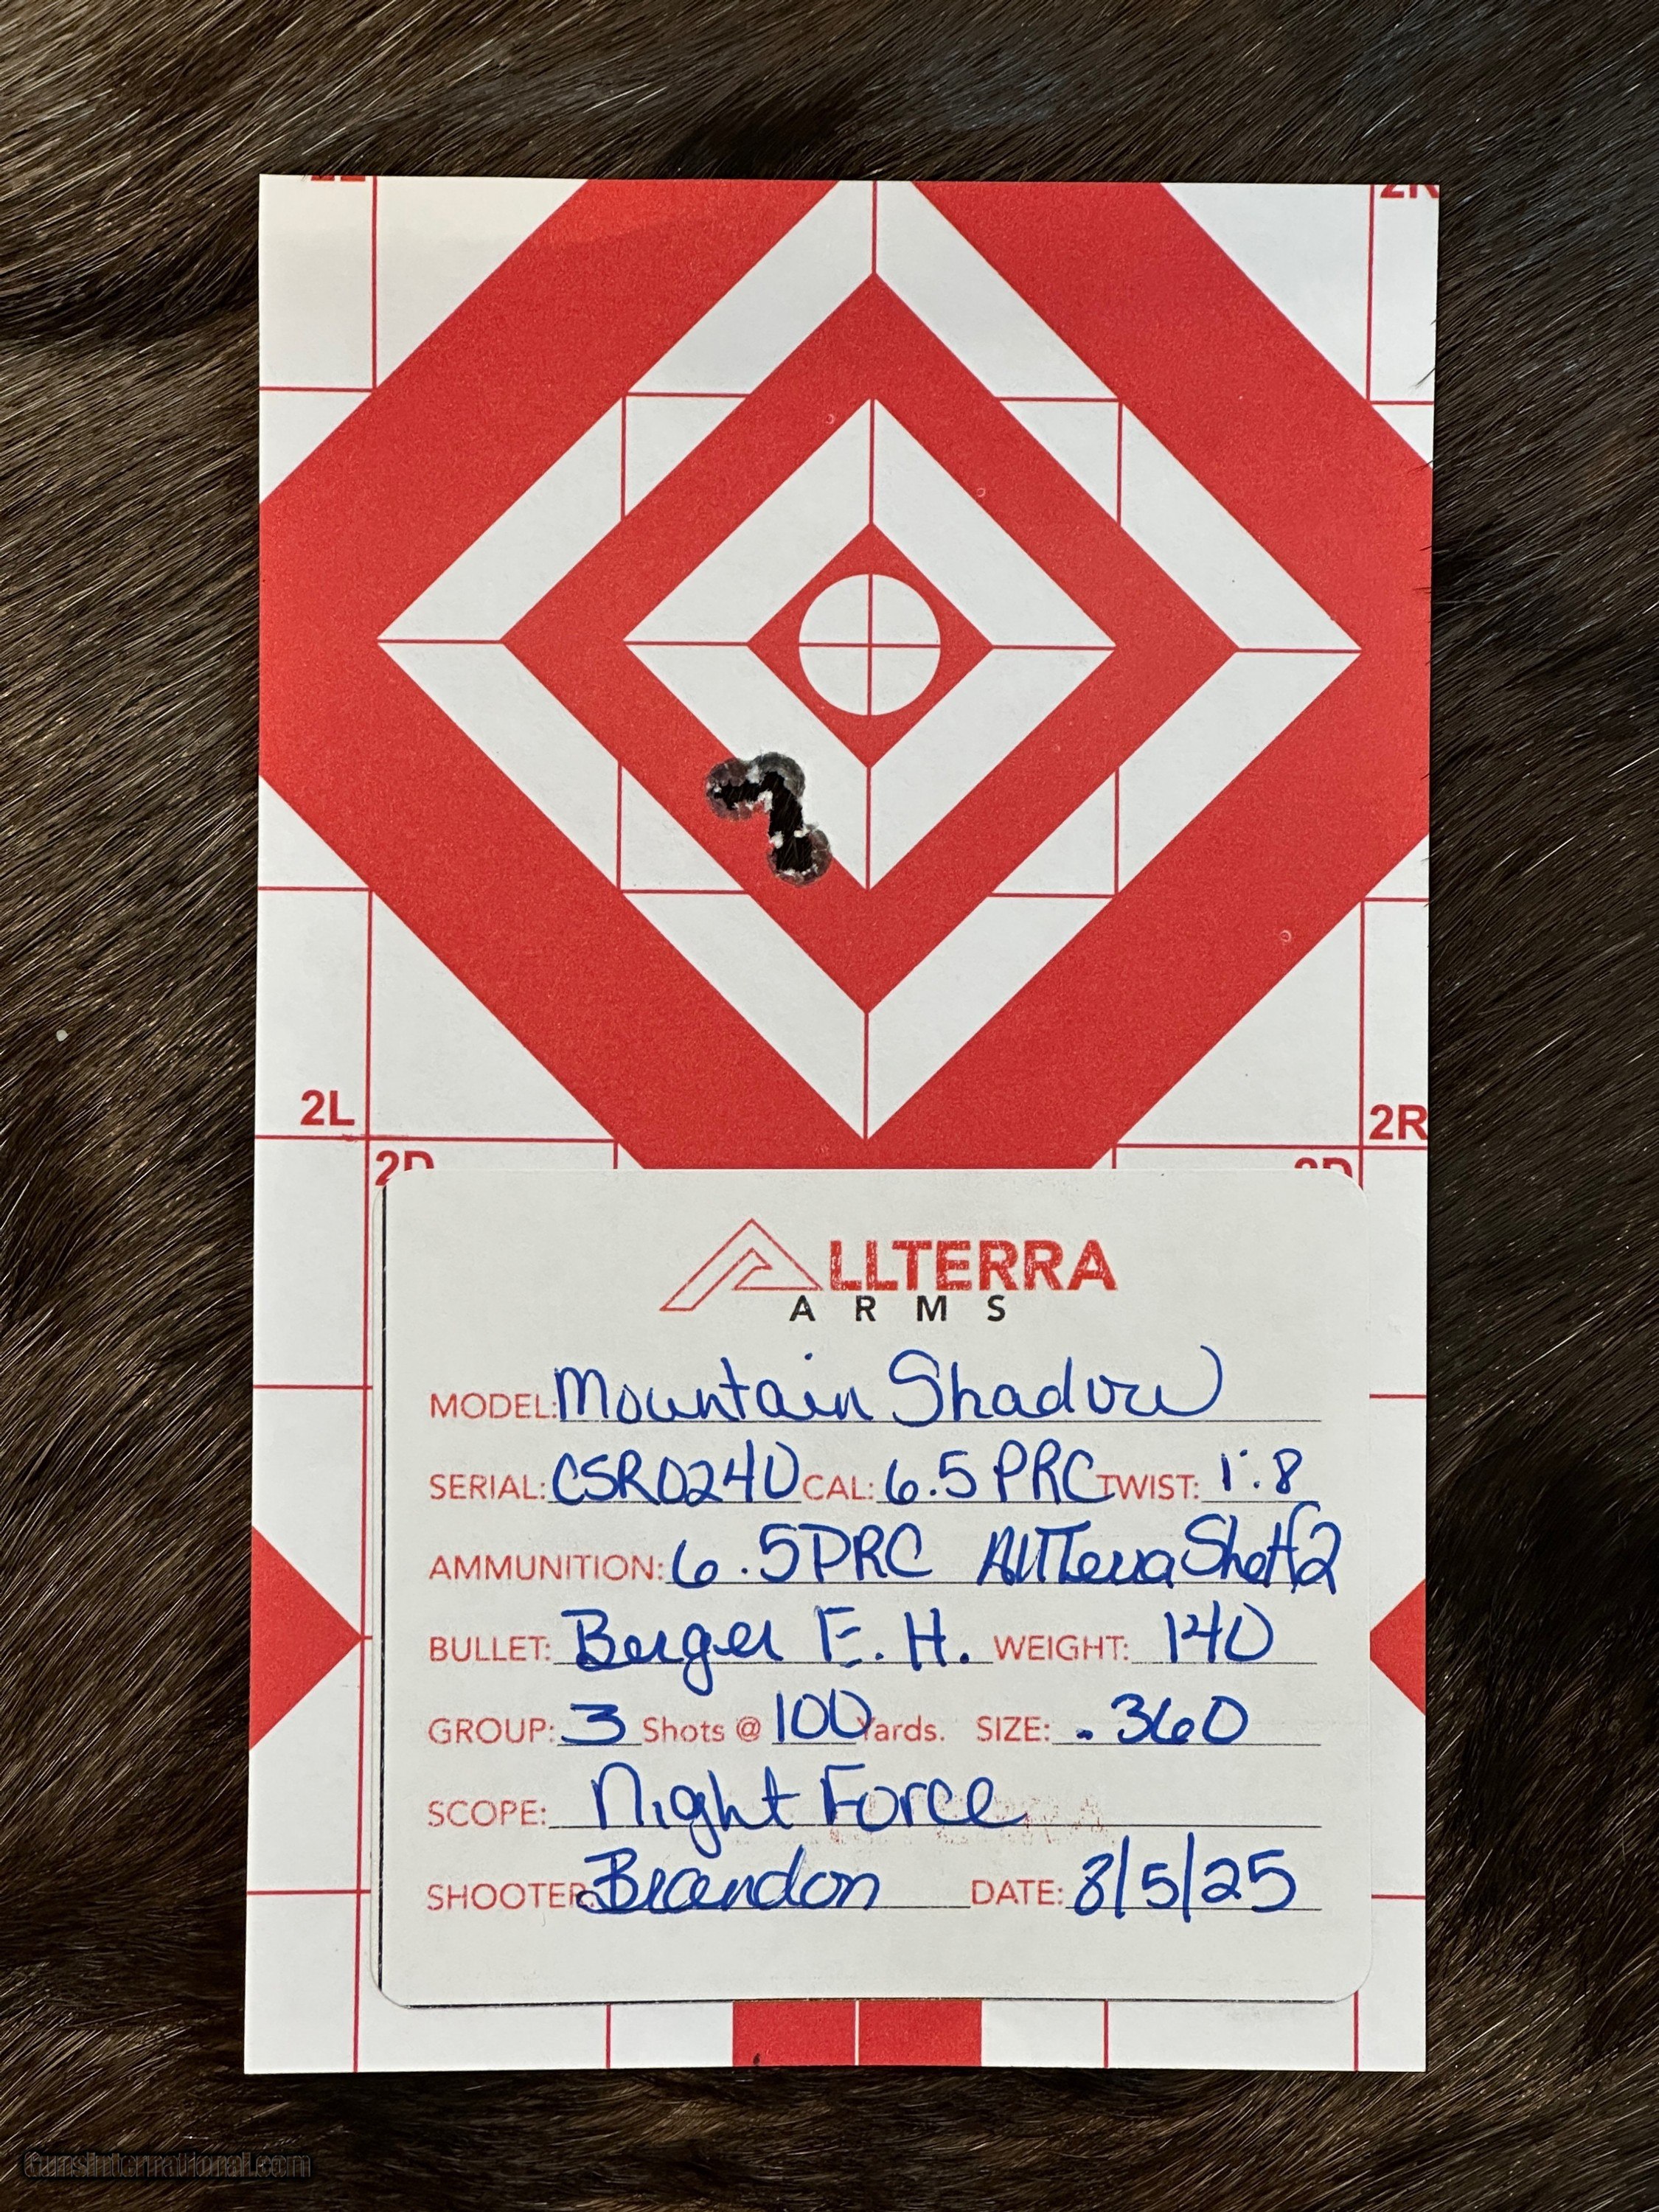 2R
2L
2R
2D
2D
ALLTERRA
ARMS
MODEL: Mountain Shadow
SERIAL: CSR0240 CAL: 6.5 PRC TWIST: 1:8
AMMUNITION: 6.5 PRC AllTerra
BULLET: Berger E. H. WEIGHT: 140
GROUP: 3 Shots @ 100 Yards. SIZE: .360
SCOPE: Night Force
SHOOTER: Brandon DATE: 8/5/25
GunsInternational.com